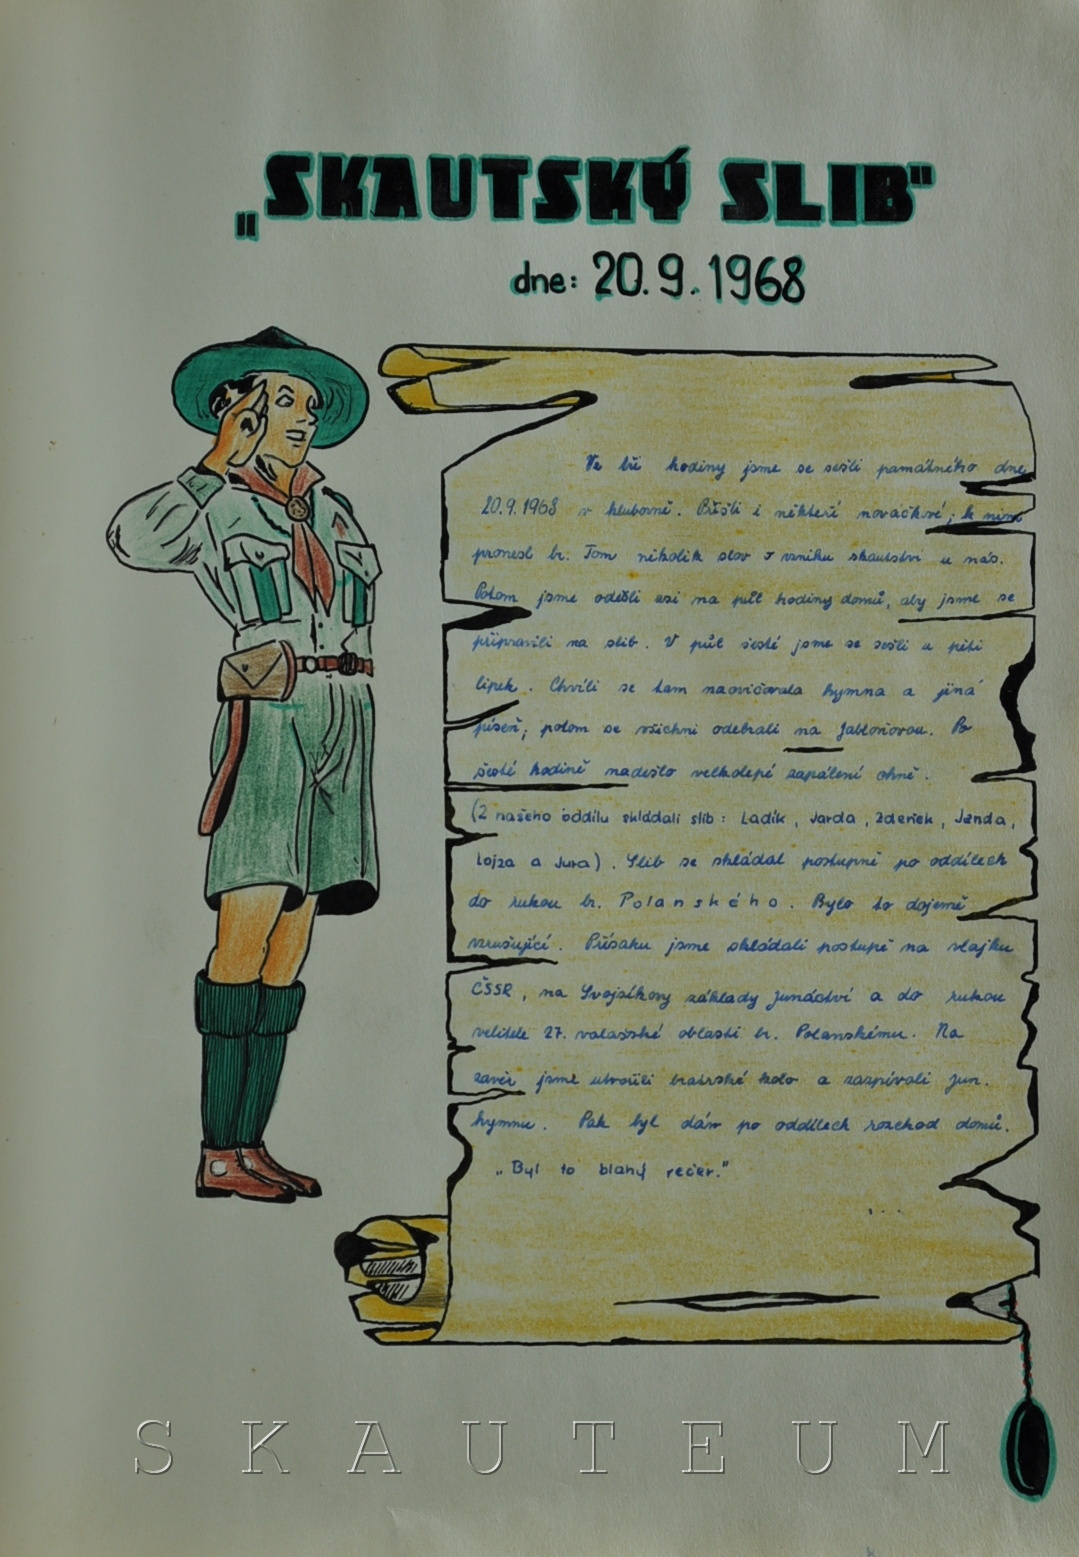 „SKAUTSKÝ SLIB"
dne: 20.9.1968
Ve tři hodiny jsme se sešli památného dne
20.9.1968 v klubovně. Přišli i někteří nováčkové; k nim
pronesl br. Tom několik slov o vzniku skautství u nás.
Potom jsme odešli asi na půl hodiny domů, aby jsme se
připravili na slib. V půl šesté jsme se sešli u pěti
lipek. Chvíli se tam nacvičovala hymna a jiná
píseň; potom se všichni odebrali na Jabloňovou. Po
šesté hodině nadešlo velkolepé zapálení ohně.
(Z našeho oddílu skládali slib: Ladík, Jarda, Zdeněk, Jenda,
Lojza a Jura). Slib se skládal postupně po oddílech
do rukou br. Polanského. Bylo to dojemě
vzrušující. Přísahu jsme skládali postupě na vlajku
ČSSR, na Svojsíkovy základy junáctví a do rukou
velitele 27. valašské oblasti br. Polanskému. Na
závěr jsme utvořili bratrské kolo a zazpívali jun.
hymnu. Pak byl dán po oddílech rozchod domů.
„Byl to blahý večer."
SKAUTEUM